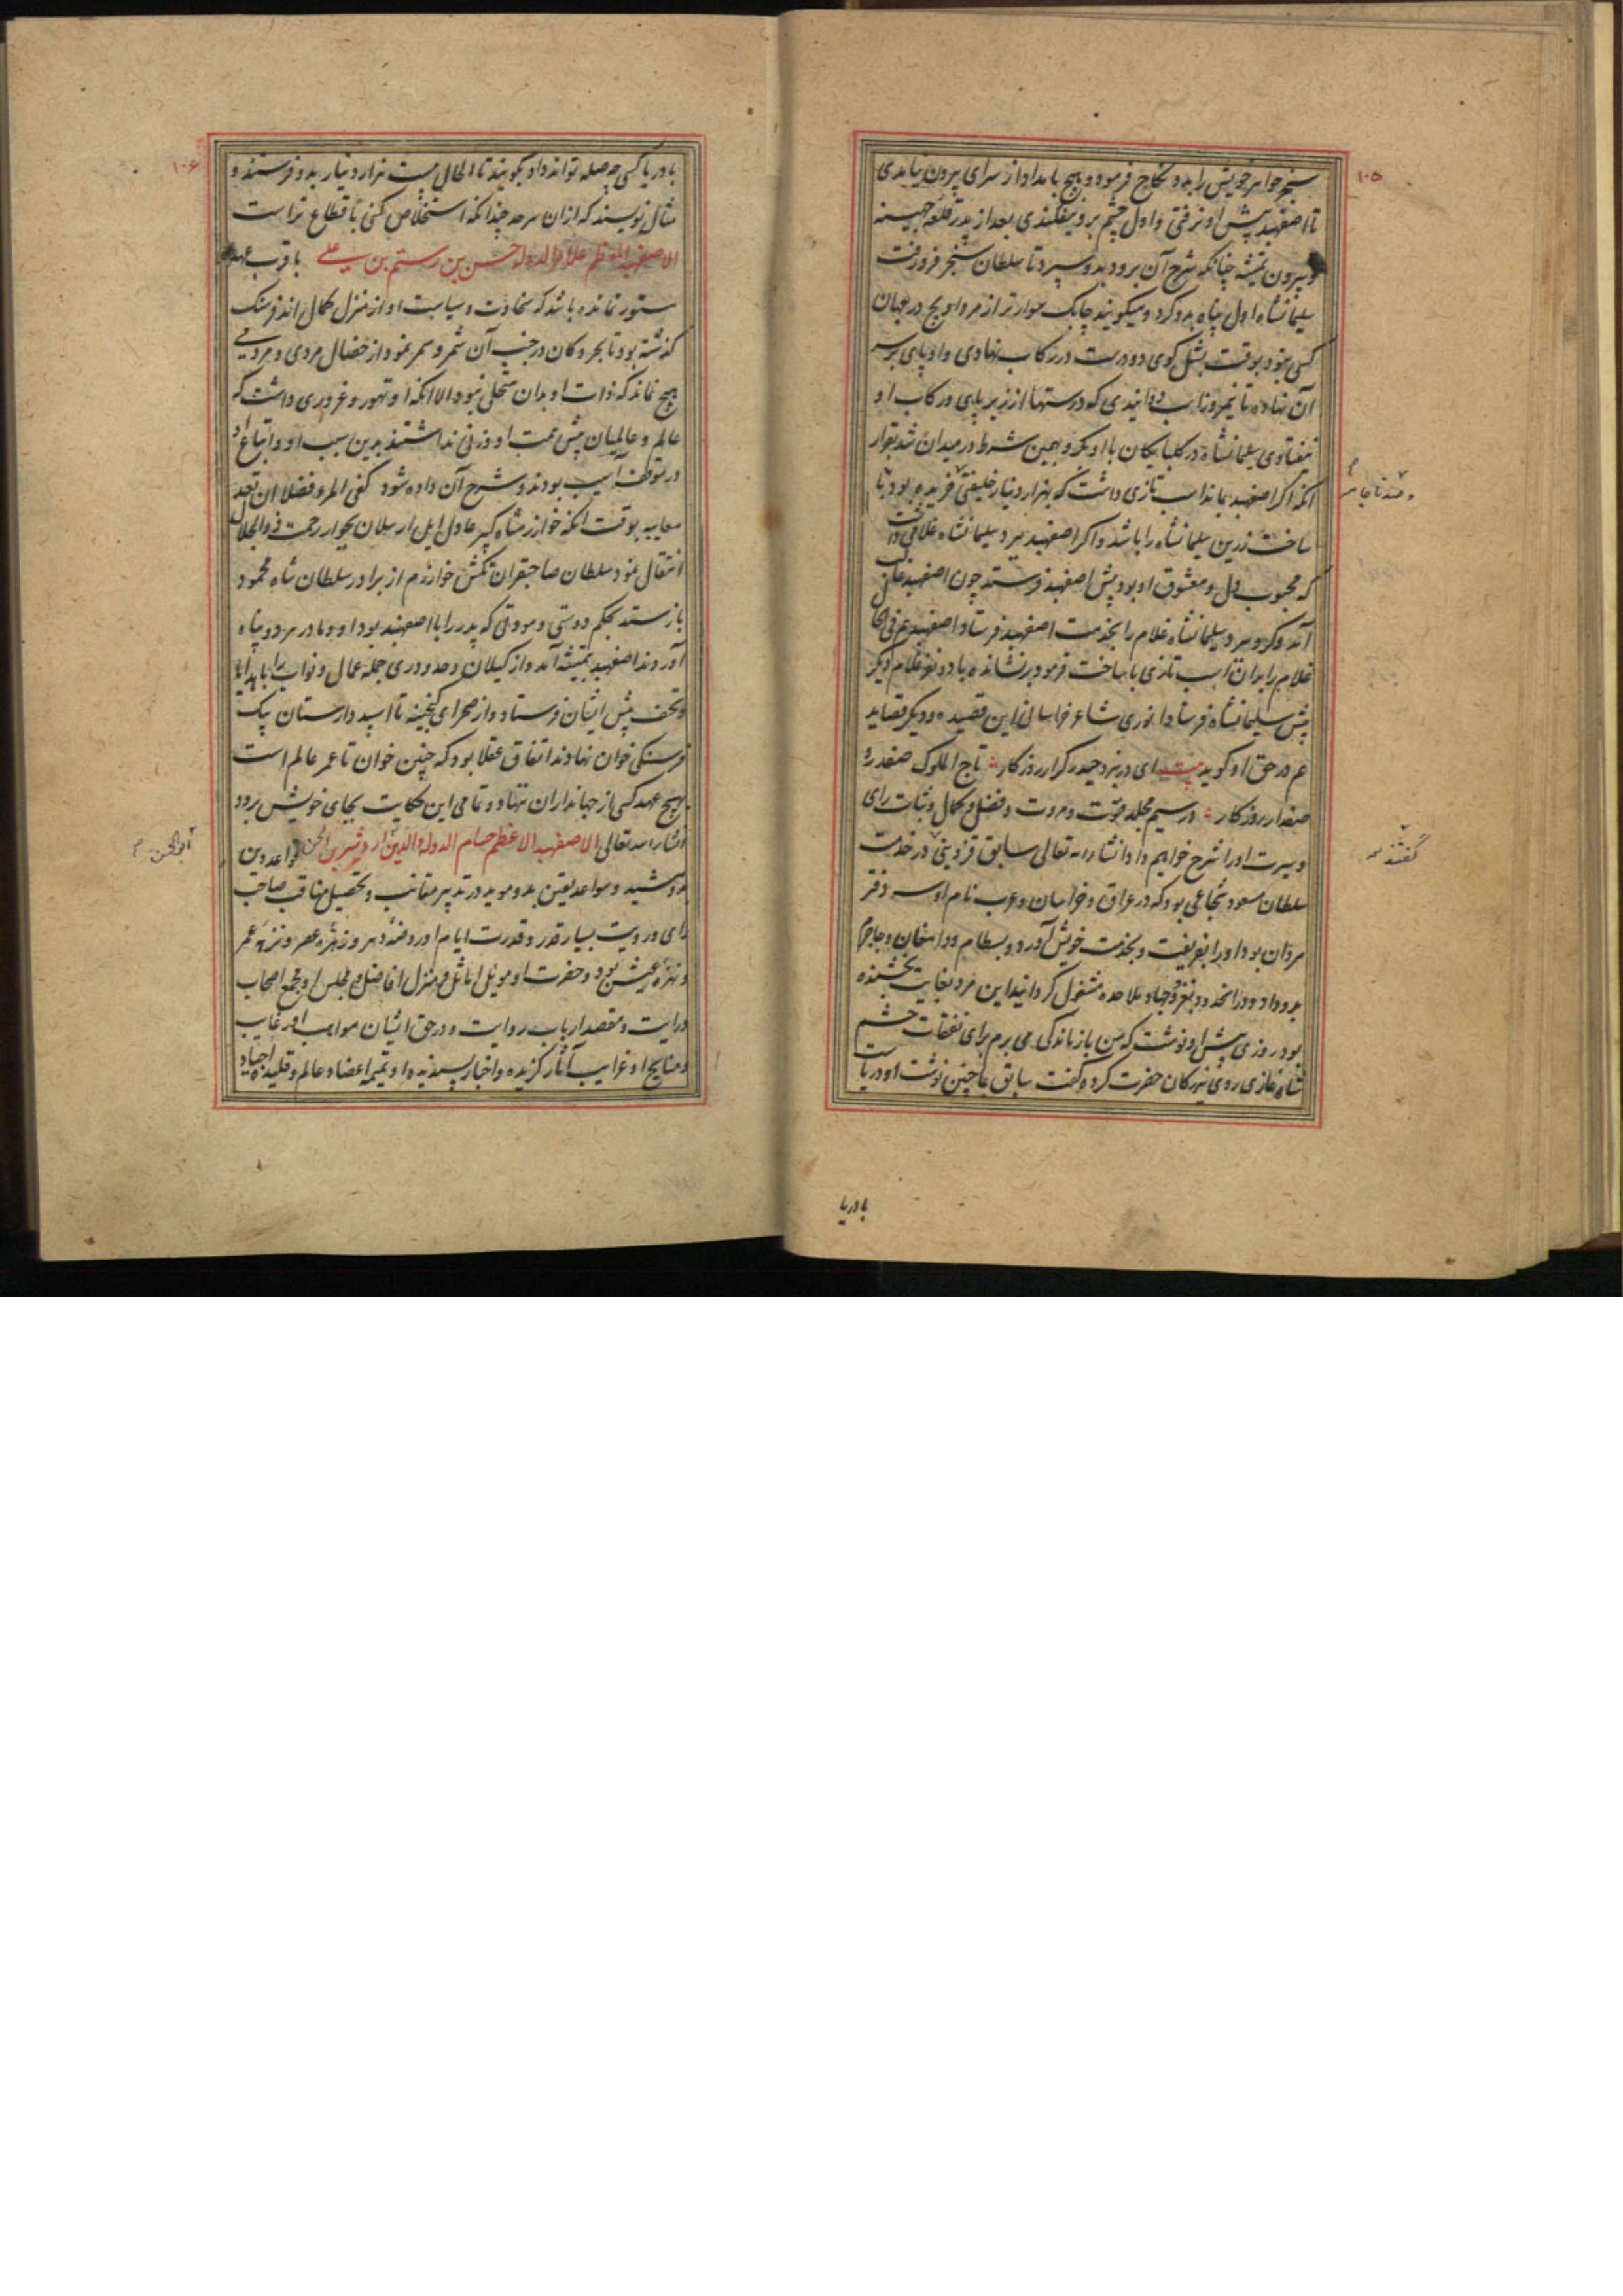 ۱۰۵
سنجر خواهر خویش را بدو نکاح فرمود و هیچ بامداد از سرای بیرون نیامدی
تا اصفهبد پیش او نرفتی و اول چشم برو نیفکندی بعد از پدر قلعه جهینه
و بیرون تمیشه چنانکه شرح آن برود بدو سپرد تا سلطان سنجر فرو رفت
سلیمانشاه اول پناه بدو کرد و میگویند چابک سوارتر از مرداویج در جهان
کسی نبود بوقت بشل کوی دو درست در رکاب نهادی و او پای بر سر
آن نهاده تا نیمروز اسب دوانیدی که درستها از زیر پای در رکاب او
نیفتادی سلیمانشاه در کلپایکان با او بکرو بهمین شرط در میدان شد بقرار
آنکه اگر اصفهبد بماند اسب تازی داشت که بهزار دینار خلیفتی خریده بود با
ساخت زرین سلیمانشاه را باشد و اگر اصفهبد ببرد سلیمانشاه غلامی داشت
که محبوب دل و معشوق او بود پیش اصفهبد فرستد چون اصفهبد
آمد و گرو ببرد سلیمانشاه غلام را بخدمت اصفهبد فرستاد اصفهبد هم فی الحال
غلام را بدان اسب تازی با ساخت فرمود برنشانده با دو نفر غلام دیگر
پیش سلیمانشاه فرستاد انوری شاعر خراسان این قصیده و دیگر قصاید
هم در حق او گوید بیت ای در نبرد حیدر کرار روزکار تاج الملوک صفدر و
صفدار روزکار در سیم مجلد فتوت و مروت و فضل و کمال و ثبات رای
و سیرت او را شرح خواهیم داد انشاء الله تعالی سابق قزوینی در خدمت
سلطان مسعود شجاعی بود که در عراق و خراسان و عرب نام او سر دفتر
مردان بود او را بفریفت و بخدمت خویش آورد و بسطام و دامغان و جاجرم
بدو داد و بغزو و جهاد ملاحده مشغول گردانید این مرد بغایت بخشنده
بود روزی پیش او نوشت که من باز ماندگی می برم برای نفقات حشم
شاه غازی روی ببزرکان حضرت کرده گفت سابق بما چنین نوشت او دریاست
گفتند
با دریا
۱۰۶
با دریا کسی چه صله تواند داد بگویند تا الحال بیست هزار دینار بدو فرستند و
مثال نویسند که از آن سرحد چندانکه استخلاص کنی باقطاع تراست
الاصفهبد المعظم علاء الدوله حسن بن رستم بن علی با قرب عهد
مستور نمانده باشد که سخاوت و سیاست او از منزل کمال اند فرسنگ
گذشته بود تا بحر و کان در جنب آن شمر و سمر نمود از خصال مردی و مردمی
هیچ نماند که ذات او بدان متحلی نبود الا آنکه او تهور و غروری داشت که
عالم و عالمیان پیش همت او وزنی نداشتند بدین سبب او و اتباع او
در موقف آسیب بودند و شرح آن داده شود کفی المرء فضلا ان تعد
معایبه بوقت آنکه خوارزمشاه کبیر عادل ایل ارسلان بجوار رحمت ذو الجلال
انتقال نمود سلطان صاحبقران تکش خوارزم از برادر سلطان شاه محمود
بازستد بحکم دوستی و مودتی که پدر را با اصفهبد بود او و مادر هر دو پناه
آوردند اصفهبد بتمیشه آمد و از گیلان و حدود ری جمله عمال و نواب را با هدایا
و تحف پیش ایشان فرستاد و از صحرای گنجینه تا اسپید دارستان یک
فرسنگی خوان نهادند اتفاق عقلا بود که چنین خوان تا عمر عالم است
بهیچ عهد کسی از جهانداران ننهاد و تمامی این حکایت بجای خویش برود
انشاء الله تعالی الاصفهبد الاعظم حسام الدوله و الدین اردشیر بن الحسن قواعد دین
بدو مشید و سواعد یقین بدو موید در تدبیر مقانب و تحصیل مناقب صاحب
رای و رویت بسیار قدر و قدرت ایام او روضه دهر و زهره عصر و نزهة عمر
و نزه عیش بود و حضرت او موئل اماثل و منزل افاضل و مجلس او مجمع اصحاب
درایت و مقصد ارباب روایت و در حق ایشان مواهب او رغایب
و منایح او غرایب آثار گزیده و اخبار پسندیده او تمیمه اعضاء عالم و قلیده اجیاد
ابو الحسن